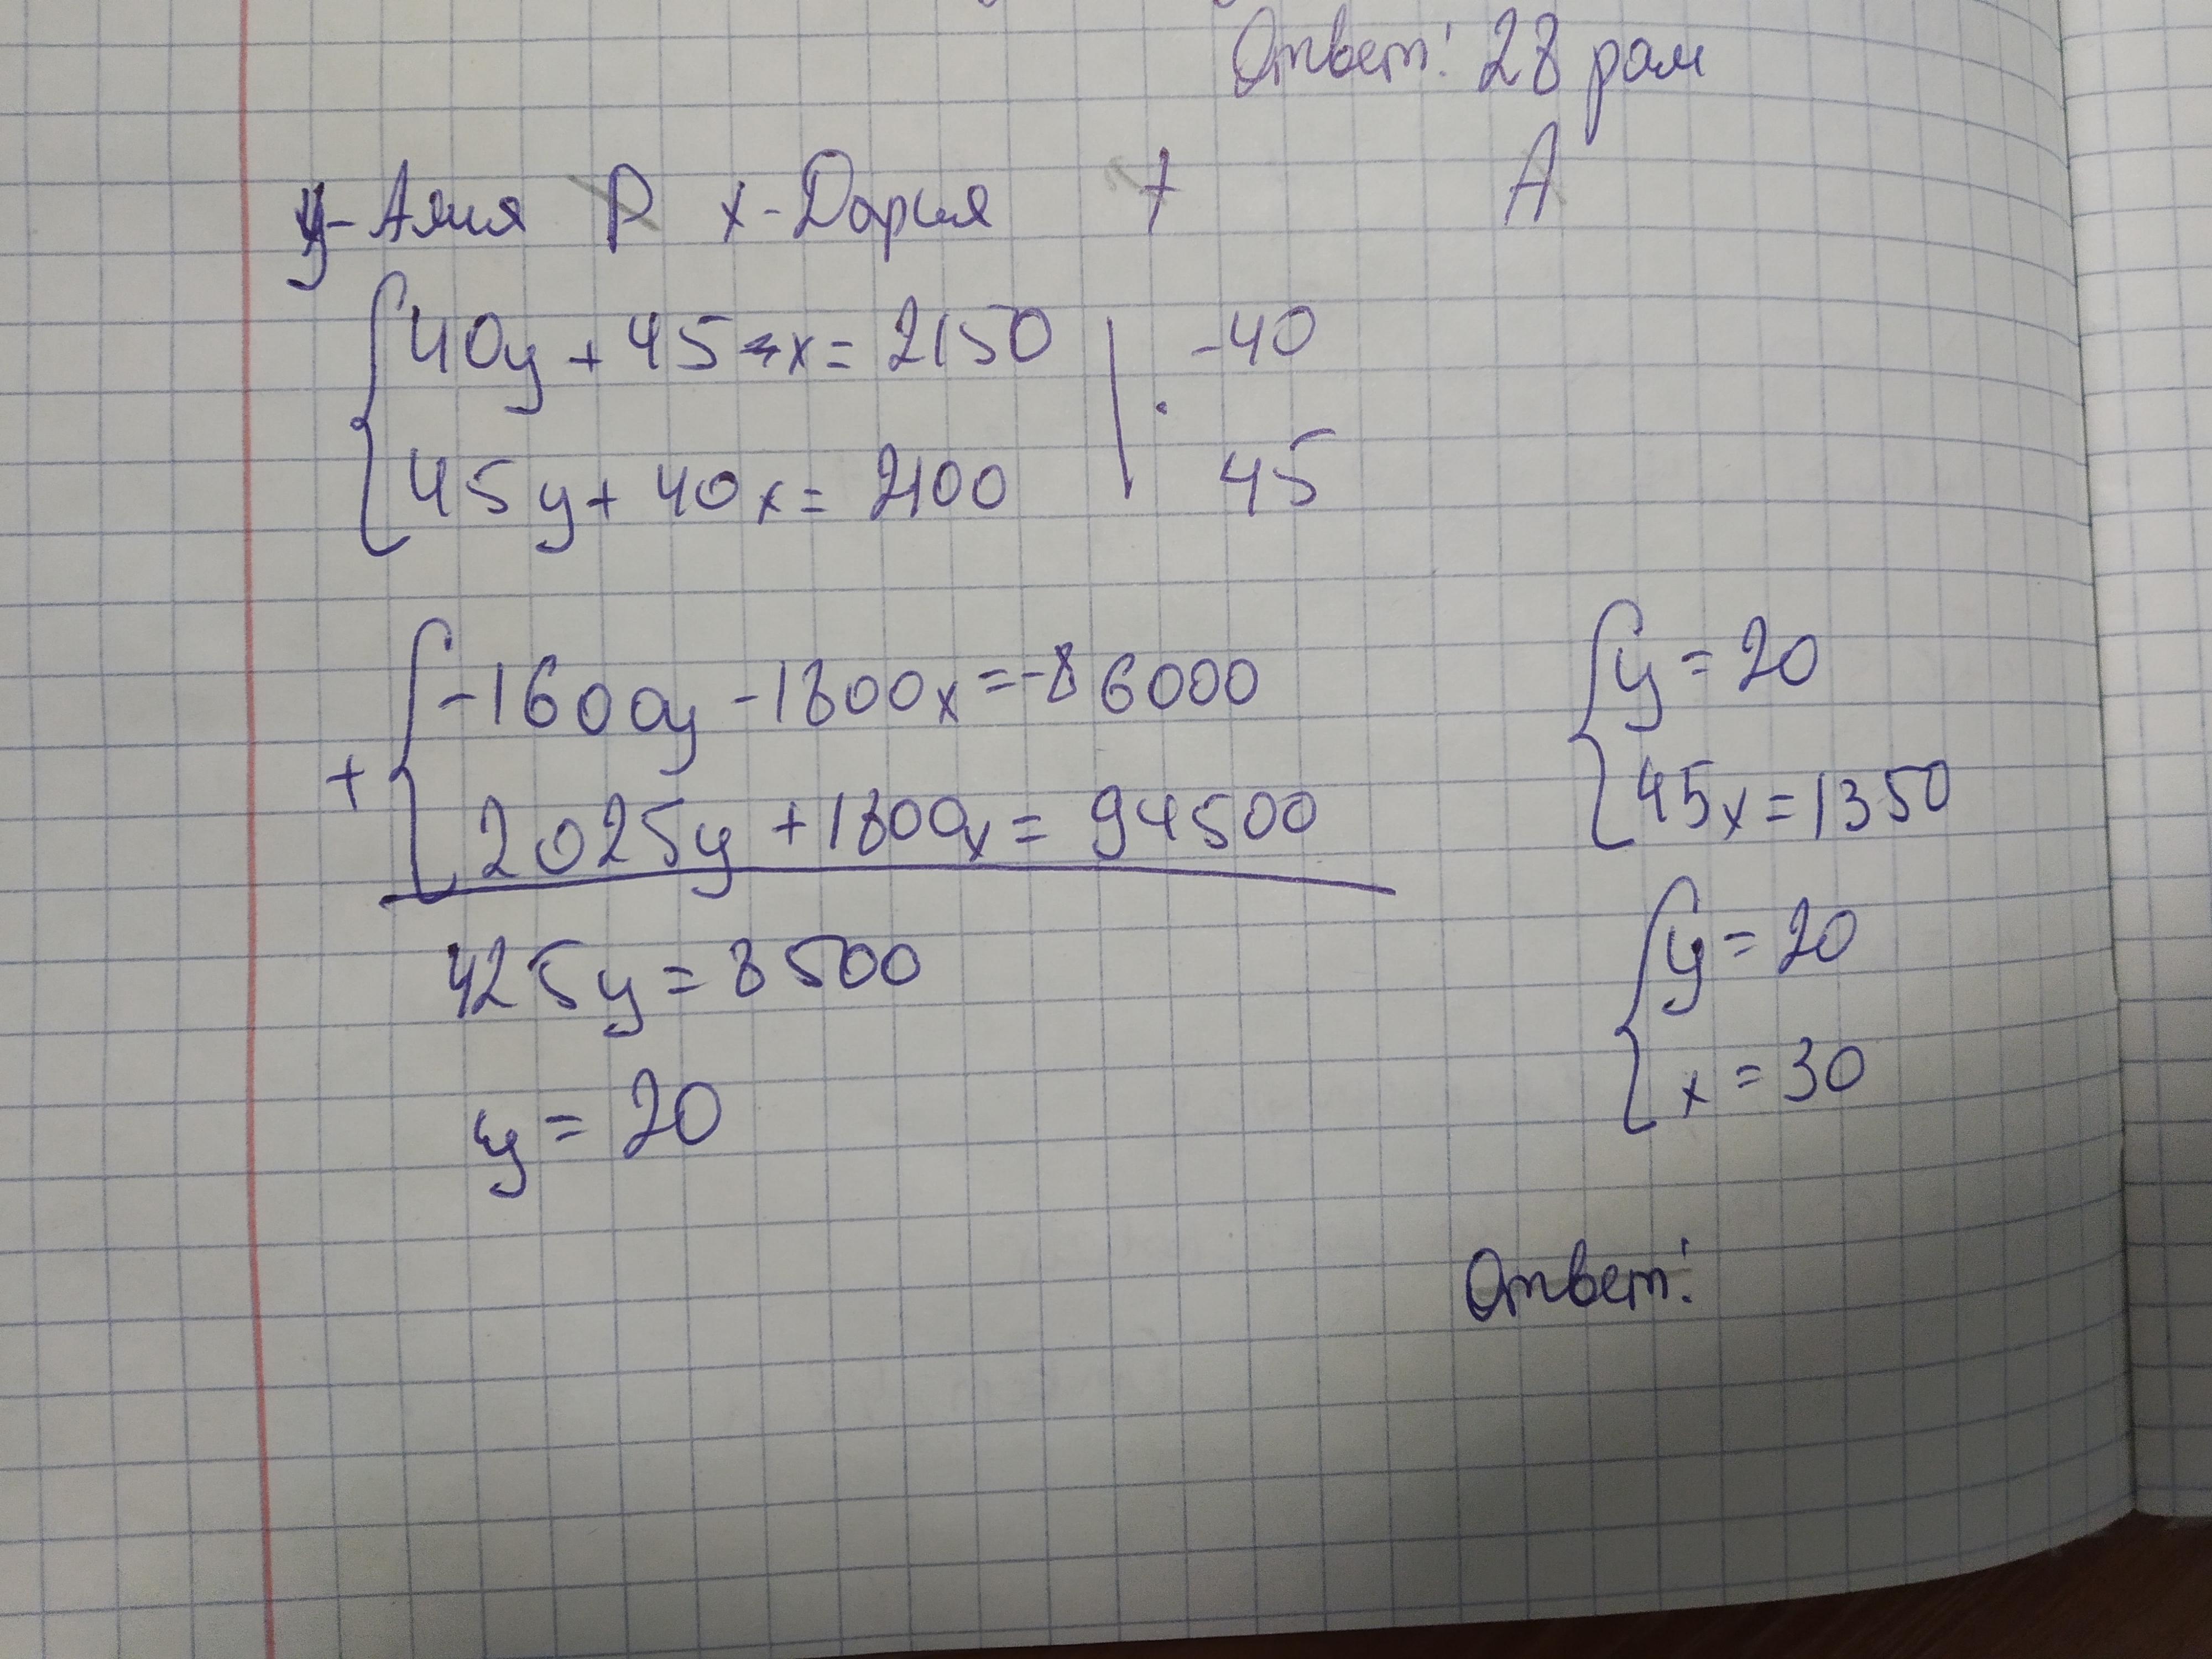 Ответ: 28 рам
y - Алия Р x - Дария + А
{ 40y + 45x = 2150 | · -40
{ 45y + 40x = 2100 | · 45
+ { -1600y - 1800x = -86000
{ 2025y + 1800x = 94500
425y = 8500
y = 20
{ y = 20
{ 45x = 1350
{ y = 20
{ x = 30
Ответ: